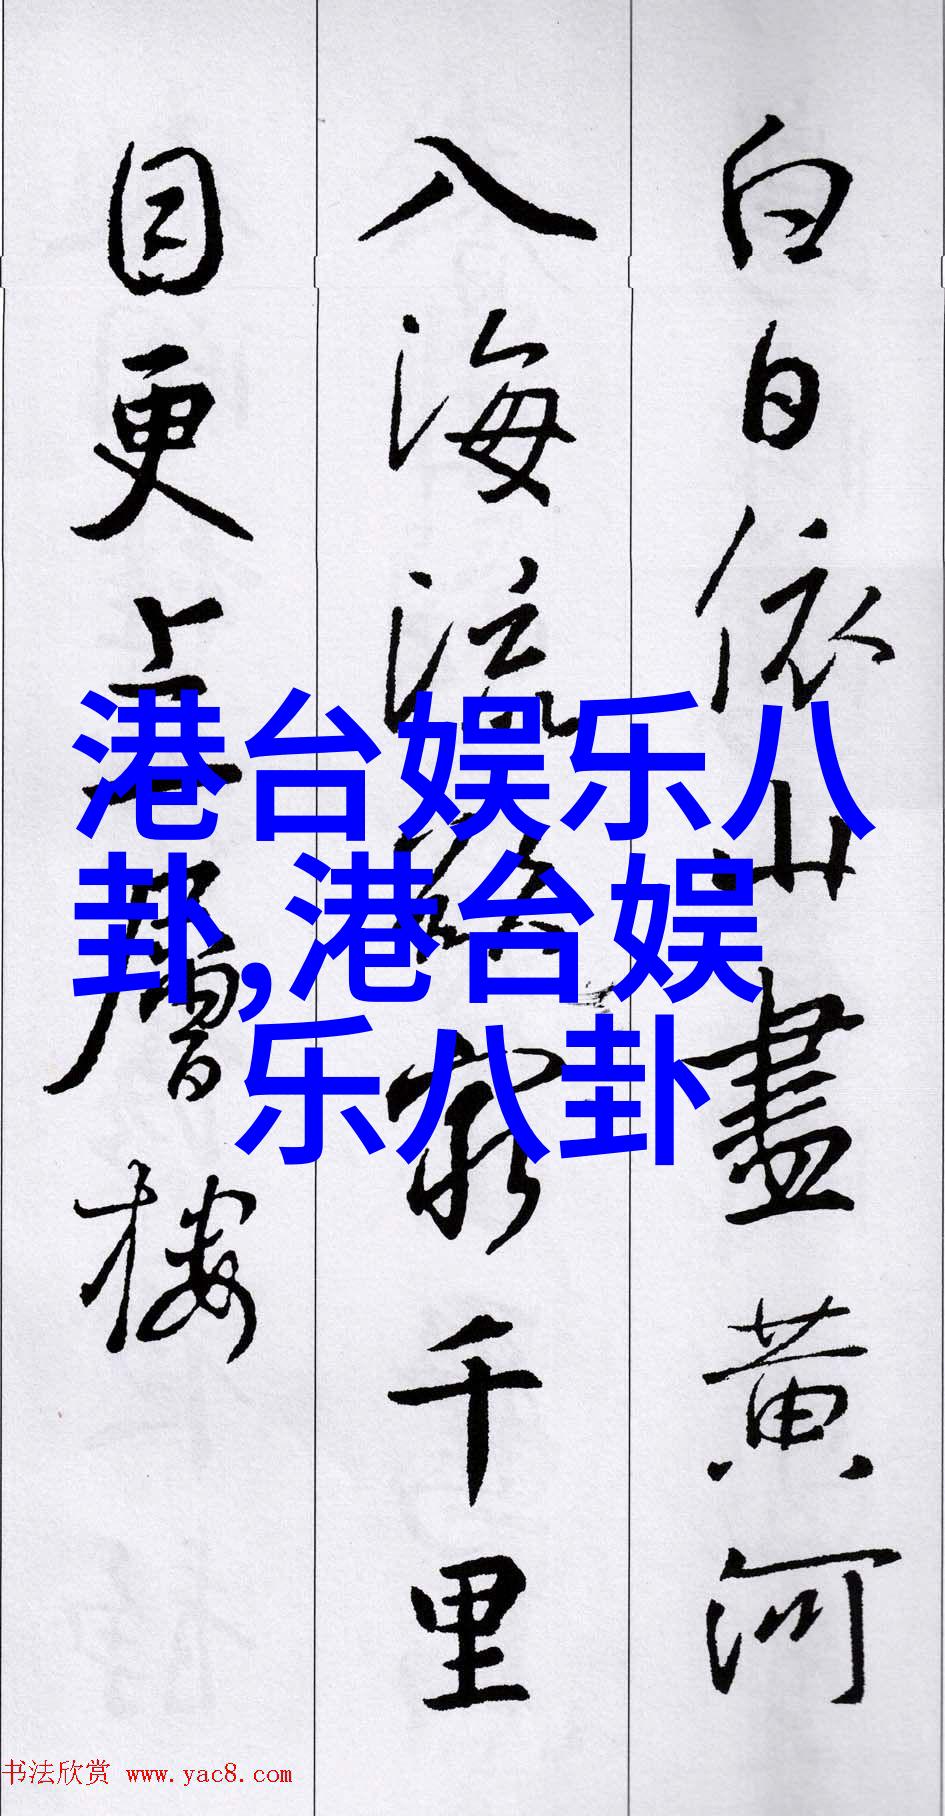 白日依山盡黄河
入海流欲窮千里
目更上層樓
港台娱乐八
卦,港台娱
乐八卦
书法欣赏 www.yac8.com